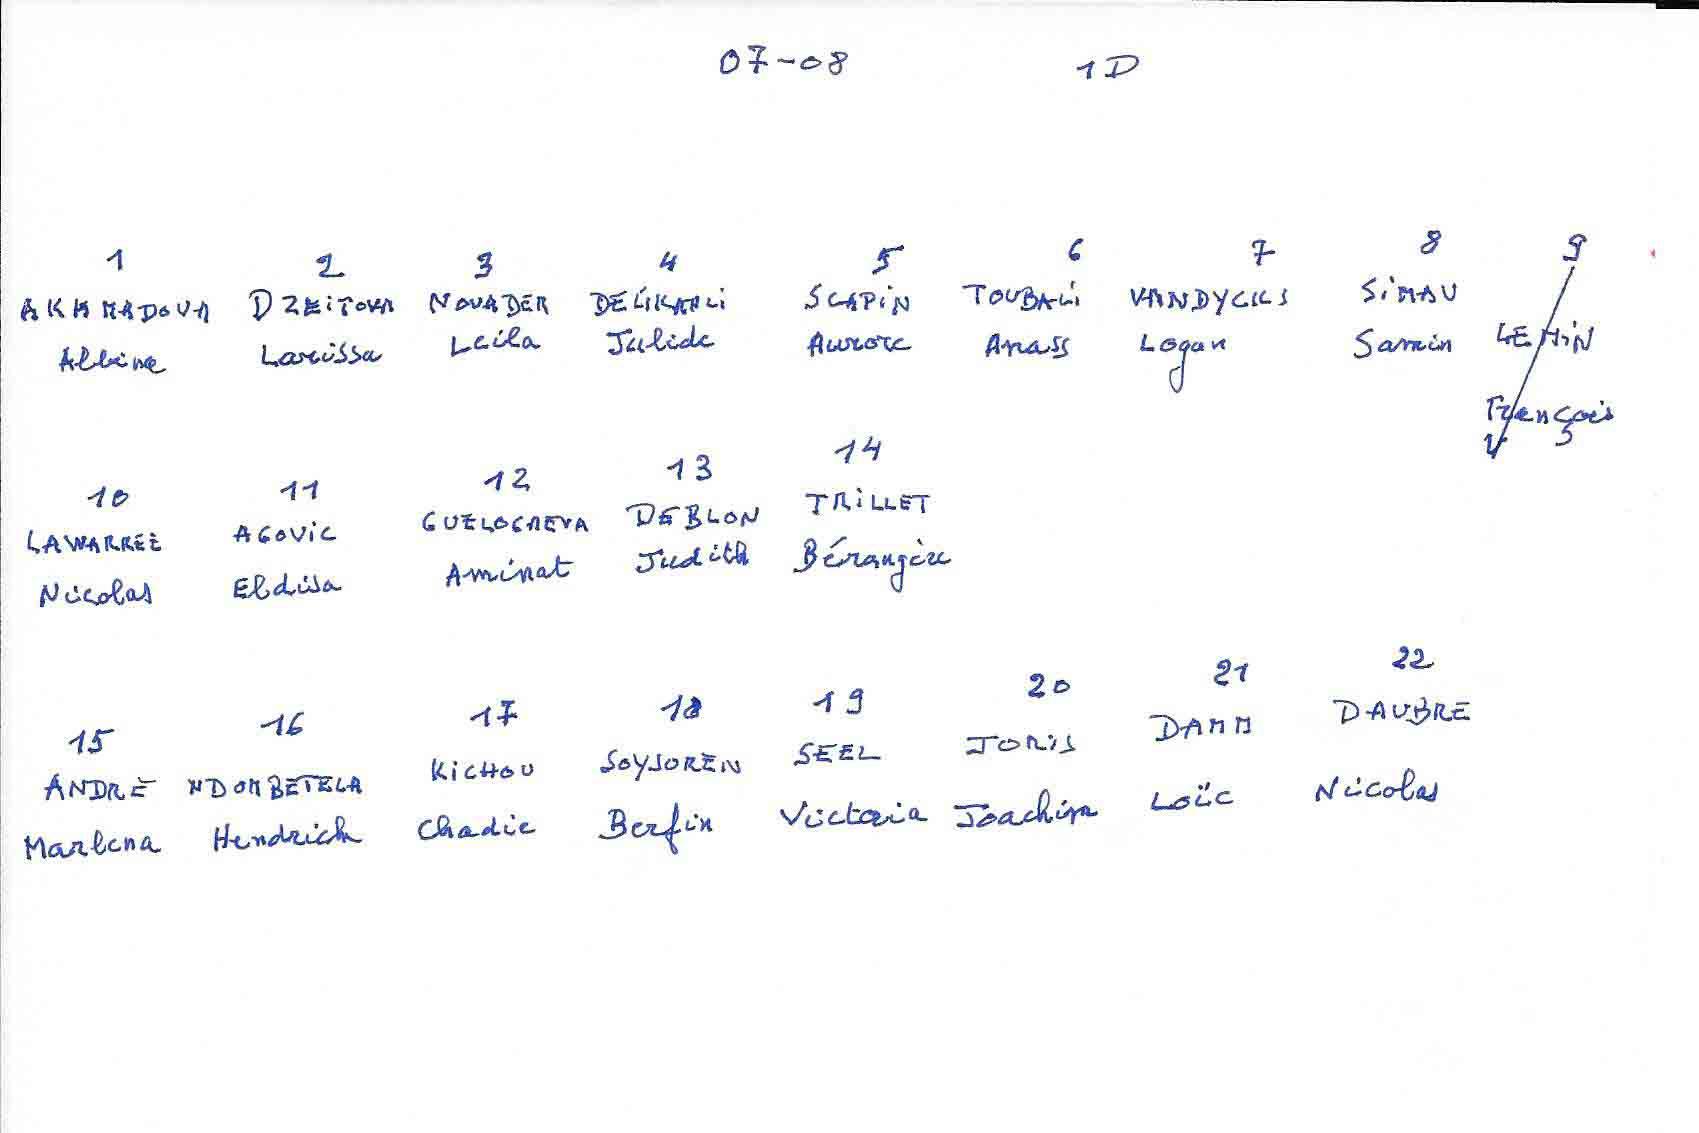 07-08 1D
1 2 3 4 5 6 7 8 9
AKHMADOVA DZEITOVA NOUADER DELIKANLI SCAPIN TOUBALI VANDYCKS SIMAU LEHIN
Albine Larissa Leila Julide Aurore Anass Logan Samin François
10 11 12 13 14
LAWARRÉE AGOVIC DEBLON TRILLET
Nicolas Eldisa Aminat Judith Bérangère
15 16 17 18 19 20 21 22
ANDRÉ NDOMBETELA KICHOU SOYSOREN SEEL JORIS DAMM DAUBRE
Marlena Hendrich Chadie Berfin Victoria Joachim Loïc Nicolas